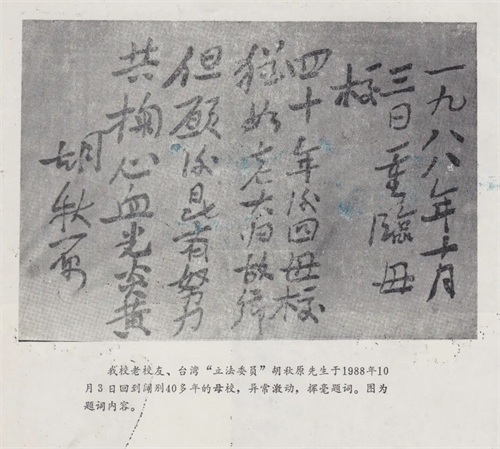 一九八八年十月
三日重臨母
校
四十年後回母校
猶如老大归故鄉
但願後昆有努力
共掬心血光炎黄
胡秋原
我校老校友、台湾“立法委员”胡秋原先生于1988年10
月3日回到阔别40多年的母校，异常激动，挥毫题词。图为
题词内容。